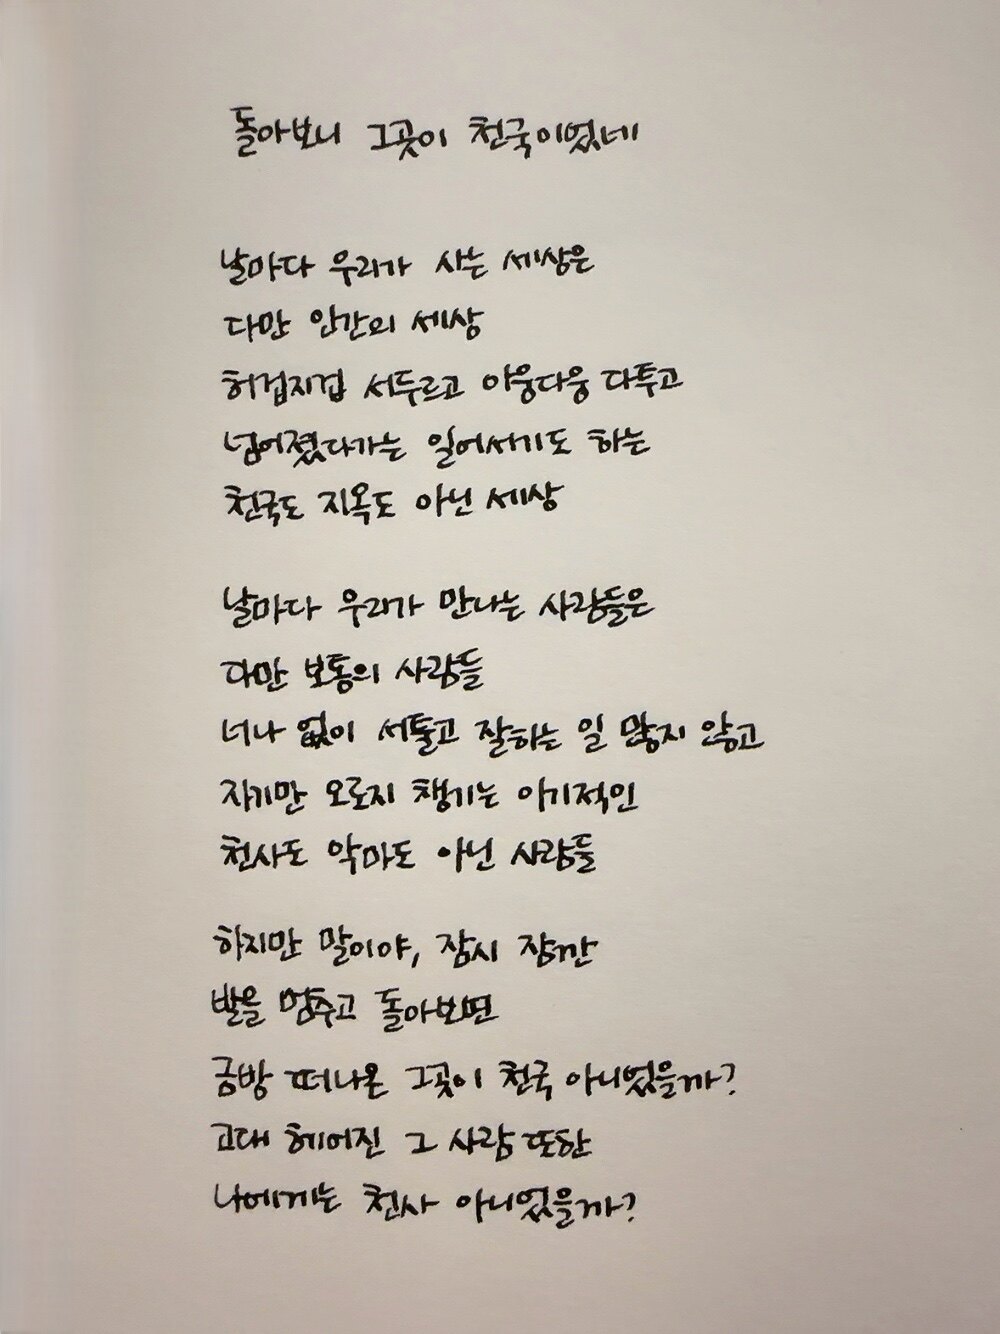 돌아보니 그곳이 천국이었네
날마다 우리가 사는 세상은
다만 인간의 세상
허겁지겁 서두르고 아웅다웅 다투고
넘어졌다가는 일어서기도 하는
천국도 지옥도 아닌 세상
날마다 우리가 만나는 사람들은
다만 보통의 사람들
너나 없이 서툴고 잘하는 일 많지 않고
자기만 오로지 챙기는 이기적인
천사도 악마도 아닌 사람들
하지만 말이야, 잠시 잠깐
발을 멈추고 돌아보면
금방 떠나온 그곳이 천국 아니었을까?
고대 헤어진 그 사람 또한
나에게는 천사 아니었을까?